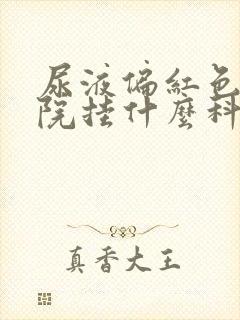 尿液偏紅色
院挂什麼科
真香大王